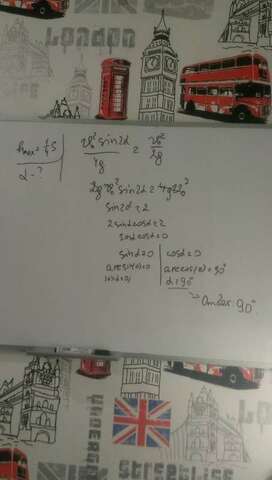 LONDON
hmax = ¼S
α - ?
v₀² sin2α / 4g = v₀² / 2g
2g v₀² sin2α = 4g v₀²
sin2α = 2
2 sinα cosα = 2
sinα cosα = 0
sinα = 0 | cosα = 0
arcsin(0) = 0 | arccos(0) = 90°
α = 90°
Ответ: 90°
UNDERGROUND
STREETLIFE